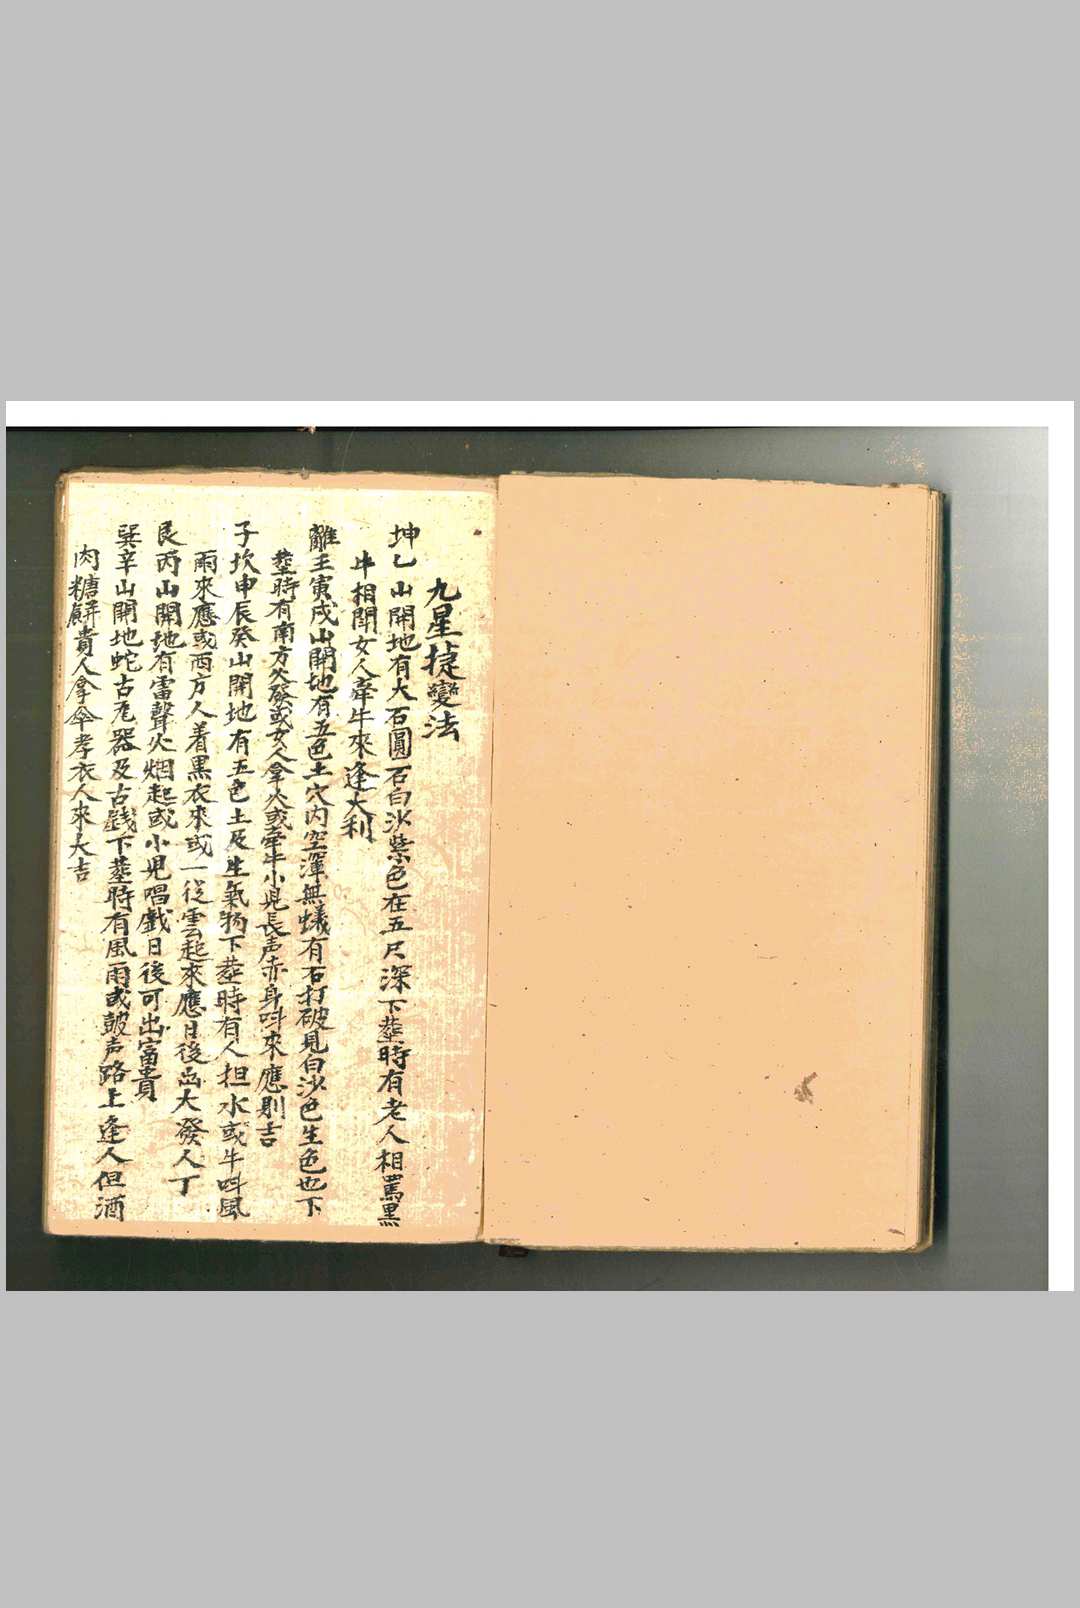 九星捷變法
坤乙山開地有大石圓石白沙紫色在五尺深下塟時有老人相罵黑
牛相閗女人牽牛來逢大利
離壬寅戌山開地有五色土穴内空渾無蟻有石打破見白沙色生色也下
塟時有南方火發或女人拿火或牽牛小児長声赤身呌來應則吉
子坎申辰癸山開地有五色土及生氣物下塟時有人担水或牛呌風
雨來應或西方人着黒衣來或一從雲起來應日後出大發人丁
艮丙山開地有雷聲火烟起或小児唱戯日後可出富貴
巽辛山開地蛇古瓦器及古錢下塟時有風雨或皷声路上逢人但酒
肉糖餅貴人拿傘孝衣人來大吉